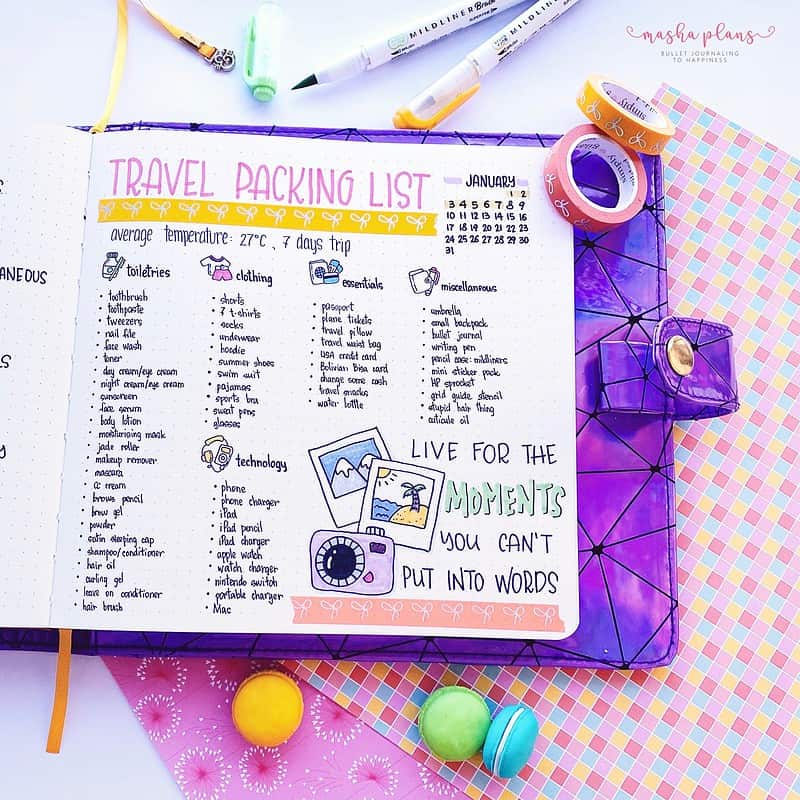 masha plans
BULLET JOURNALING
TO HAPPINESS
MILDLINER Brush
MILDLINER
ANEOUS
TRAVEL PACKING LIST
average temperature: 27°C, 7 days trip
JANUARY
1 2
3 4 5 6 7 8 9
10 11 12 13 14 15 16
17 18 19 20 21 22 23
24 25 26 27 28 29 30
31
toiletries
• toothbrush
• toothpaste
• tweezers
• nail file
• face wash
• toner
• day cream/eye cream
• night cream/eye cream
• sunscreen
• face serum
• body lotion
• moisturizing mask
• jade roller
• makeup remover
• mascara
• CC cream
• brows pencil
• brow gel
• powder
• satin sleeping cap
• shampoo/conditioner
• hair oil
• curling gel
• leave on conditioner
• hair brush
clothing
• shorts
• 7 t-shirts
• socks
• underwear
• hoodie
• summer shoes
• swim suit
• pajamas
• sports bra
• sweat pens
• glasses
technology
• phone
• phone charger
• iPad
• iPad pencil
• iPad charger
• apple watch
• watch charger
• nintendo switch
• portable charger
• Mac
essentials
• passport
• plane tickets
• travel pillow
• travel waist bag
• USA credit card
• Bolivian Visa card
• change some cash
• travel snacks
• water bottle
miscellaneous
• umbrella
• small backpack
• bullet journal
• writing pen
• pencil case: mildliners
• mini sticker pack
• HP sprocket
• grid guide stencil
• stupid hair thing
• cuticule oil
LIVE FOR THE
MOMENTS
YOU CAN'T
PUT INTO WORDS